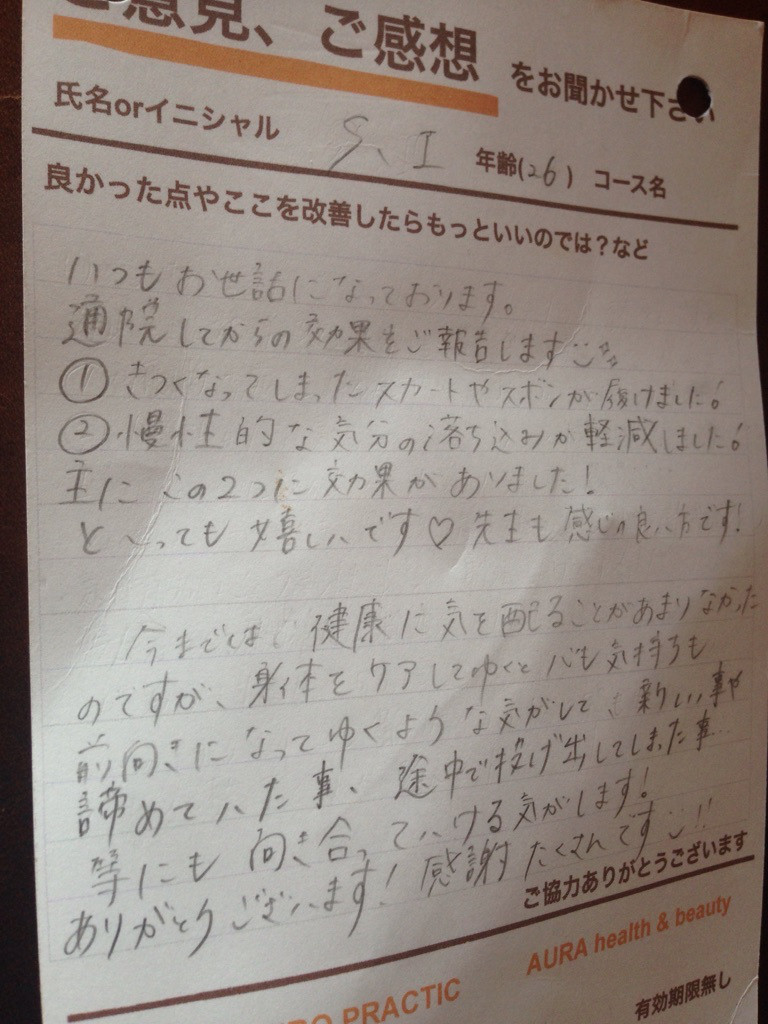 ご意見、ご感想 をお聞かせ下さい
氏名orイニシャル S、I 年齢(26) コース名
良かった点やここを改善したらもっといいのでは？など
いつもお世話になっております。
通院してからの効果をご報告します
① きつくなってしまったスカートやズボンが履けました!
② 慢性的な気分の落ち込みが軽減しました!
主にこの2つに効果がありました!
とーっても嬉しいです♡ 先生も感じの良い方です!
今までは 健康に気を配ることがあまりなかった
のですが、身体をケアしてゆくと心も気持ちも
前向きになってゆくような気がして 新しい事や
諦めていた事、途中で投げ出してしまった事…
等にも向き合っていける気がします!
ありがとうございます! 感謝たくさんです!!
ご協力ありがとうございます
AURA health & beauty
PRACTIC
有効期限無し